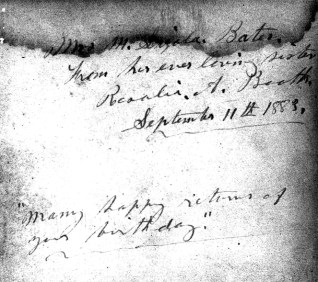 Mrs M. Bates.
from her ever loving sister
Rosalie. A. Booth.
September 11th 1883.
"Many happy returns of
your birthday."